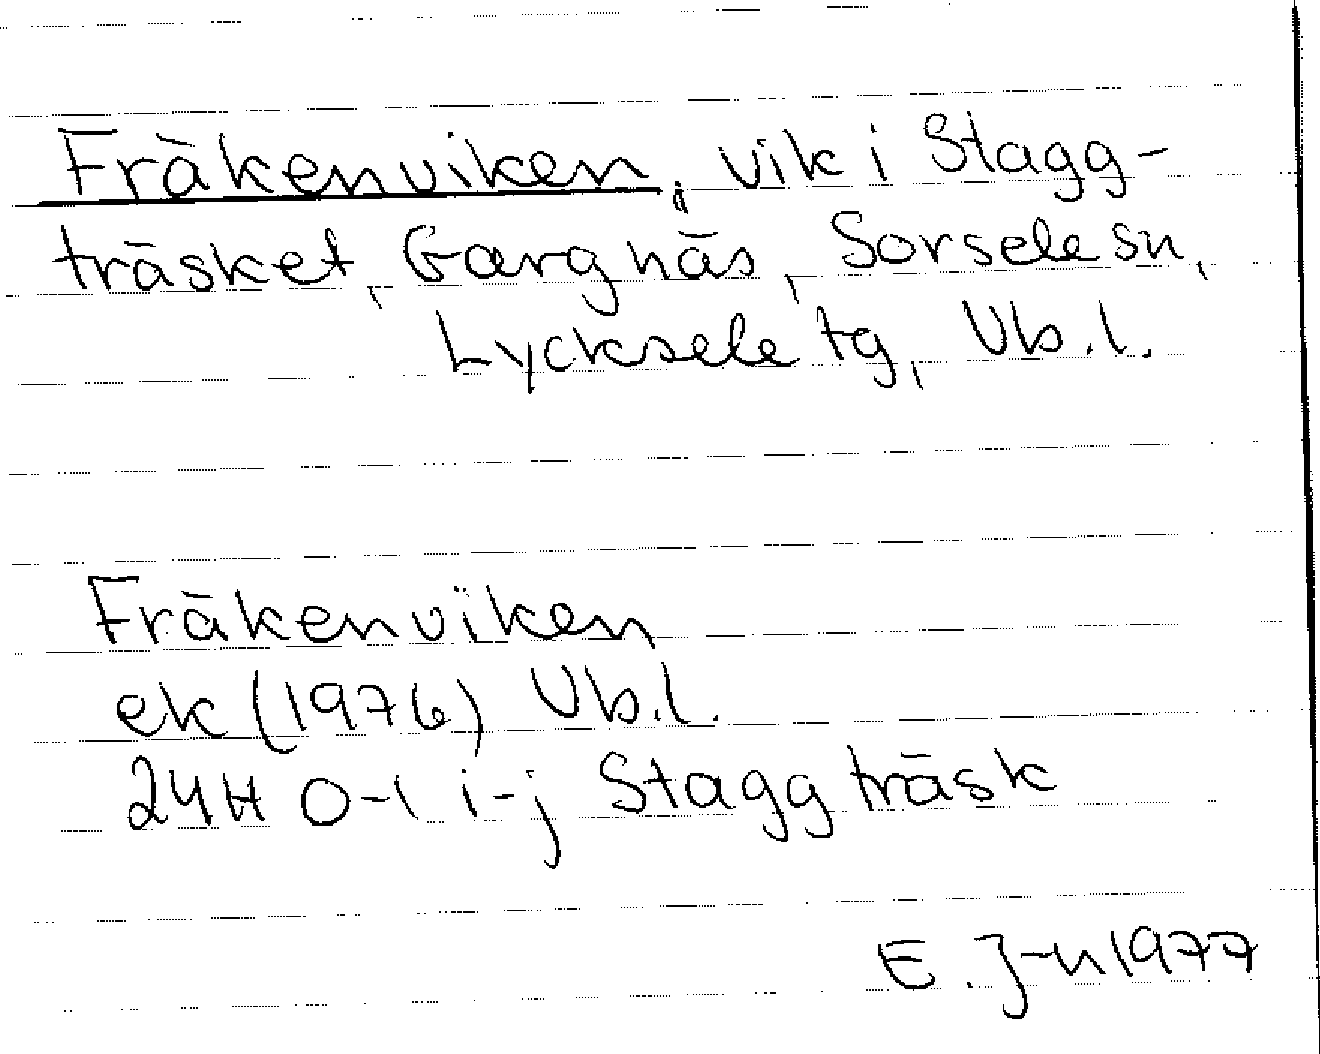 Fräkenviken, vik i Stagg-
träsket, Gargnäs, Sorsele sn,
Lycksele tg, Vb.l.
Fräkenviken
ek (1976) Vb.l.
24H 0-1 i-j Staggträsk
E. J-n 1977